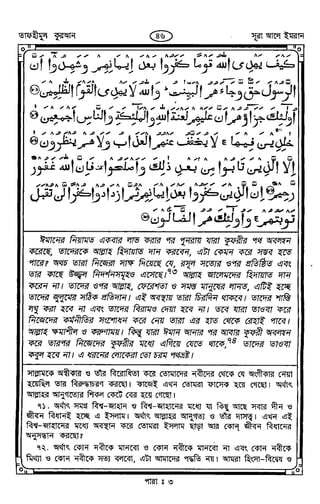 তাফহীমুল কুরআন
৪৬
সূরা আলে ইমরান
كَيْفَ يَهْدِى اللهُ قَوْمًا كَفَرُوْا بَعْدَ اِيْمَانِهِمْ وَشَهِدُوْٓا اَنَّ
الرَّسُوْلَ حَقٌّ وَّجَآءَهُمُ الْبَيِّنٰتُ ؕ وَاللهُ لَا يَهْدِى الْقَوْمَ الظّٰلِمِيْنَ
اُولٰٓئِكَ جَزَآؤُهُمْ اَنَّ عَلَيْهِمْ لَعْنَةَ اللهِ وَالْمَلٰٓئِكَةِ وَالنَّاسِ اَجْمَعِيْنَ
خٰلِدِيْنَ فِيْهَا ۚ لَا يُخَفَّفُ عَنْهُمُ الْعَذَابُ وَلَا هُمْ يُنْظَرُوْنَ
اِلَّا الَّذِيْنَ تَابُوْا مِنْۢ بَعْدِ ذٰلِكَ وَاَصْلَحُوْا فَاِنَّ اللهَ غَفُوْرٌ
رَّحِيْمٌ اِنَّ الَّذِيْنَ كَفَرُوْا بَعْدَ اِيْمَانِهِمْ ثُمَّ ازْدَادُوْا كُفْرًا لَّنْ تُقْبَلَ
تَوْبَتُهُمْ ۚ وَاُولٰٓئِكَ هُمُ الضَّآلُّوْنَ
ঈমানের নিয়ামত একবার লাভ করার পর পুনরায় যারা কুফরীর পথ অবলম্বন
করেছে, তাদেরকে আল্লাহ হিদায়াত দান করবেন, এটা কেমন করে সম্ভব হতে
পারে? অথচ তারা নিজেরা সাক্ষ দিয়েছে যে, রসূল সত্যের ওপর প্রতিষ্ঠিত এবং
তার কাছে উজ্জ্বল নিদর্শনসমূহও এসেছে।৭৩ আল্লাহ জালেমদের হিদায়াত দান
করেন না। তাদের ওপর আল্লাহ, ফেরেশতা ও সমস্ত মানুষের লানত, এটিই হচ্ছে
তাদের জুলুমের সঠিক প্রতিদান। এই অবস্থায় তারা চিরদিন থাকবে। তাদের শাস্তি
লঘু করা হবে না এবং তাদের বিরামও দেয়া হবে না। তবে যারা তাওবা করে
নিজেদের কর্মনীতির সংশোধন করে নেয় তারা এর হাত থেকে রেহাই পাবে।
আল্লাহ ক্ষমাশীল ও করুণাময়। কিন্তু যারা ঈমান আনার পর আবার কুফরী অবলম্বন
করে তারপর নিজেদের কুফরীর মধ্যে এগিয়ে যেতে থাকে,৭৪ তাদের তাওবা
কবুল হবে না। এ ধরনের লোকেরা তো চরম পথভ্রষ্ট।
সাল্লামকে অস্বীকার ও তাঁর বিরোধিতা করে তোমাদের নবীদের থেকে যে অংগীকার নেয়া
হয়েছিল তার বিরুদ্ধাচরণ করছো। কাজেই এখন তোমরা ফাসেক হয়ে গেছো। অর্থাৎ
আল্লাহর আনুগত্যের শিকল কেটে বের হয়ে গেছো।
৭১. অর্থাৎ সমগ্র বিশ্ব-জাহান ও বিশ্ব-জাহানের মধ্যে যা কিছু আছে সবার দীন ও
জীবন বিধানই হচ্ছে এ ইসলাম। অর্থাৎ আল্লাহর আনুগত্য ও তাঁর দাসত্ব। এখন এই
বিশ্ব-জাহানের মধ্যে অবস্থান করে তোমরা ইসলাম ছাড়া আর কোন্ জীবন বিধানের
অনুসন্ধান করছো?
৭২. অর্থাৎ কোন নবীকে মানবো ও কোন নবীকে মানবো না এবং কোন নবীকে
মিথ্যা ও কোন নবীকে সত্য বলবো, এটা আমাদের পদ্ধতি নয়। আমরা হিংসা-বিদ্বেষ ও
পারা ঃ ৩